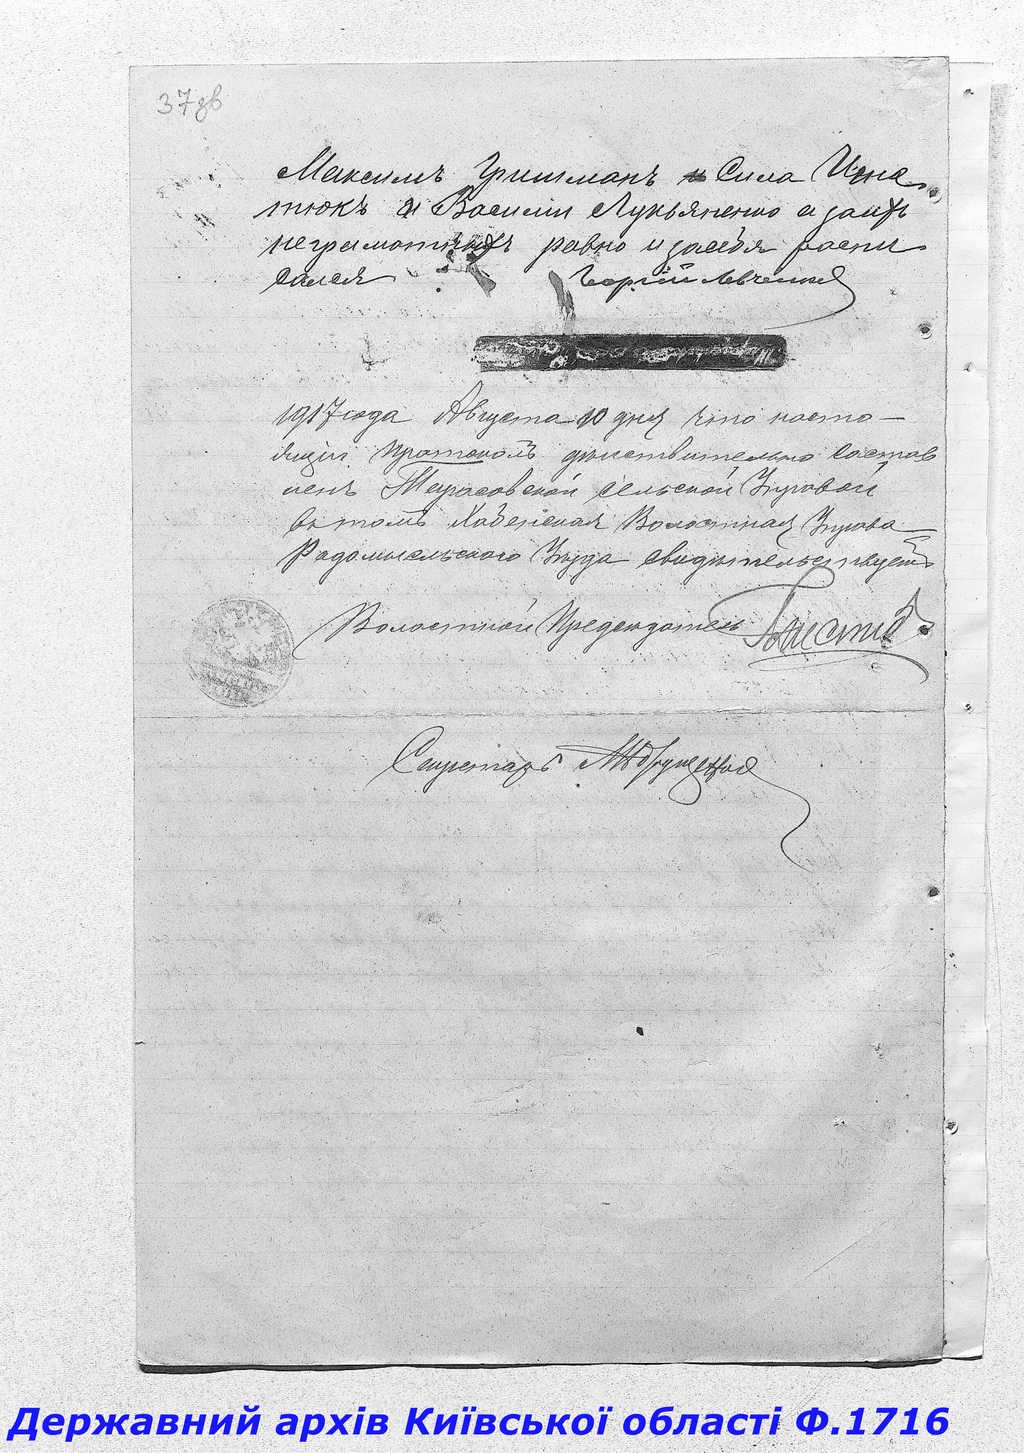 37зв
Максимъ Гришманъ и Сила Игна
тюкъ и Василий Лукьяненко а заихъ
неграмотныхъ равно и засебя роспи
сался Георгій Левченко
1917 года Августа 10 дня что насто-
ящій Протоколъ дѣйствительно состав
ленъ Тарасовской Сельской Управой
въ томъ Хабенская Волостная Управа
Радомысльского Уѣзда свидѣтельствуетъ
Волостной Председатель
Секретарь
Державний архів Київської області Ф.1716